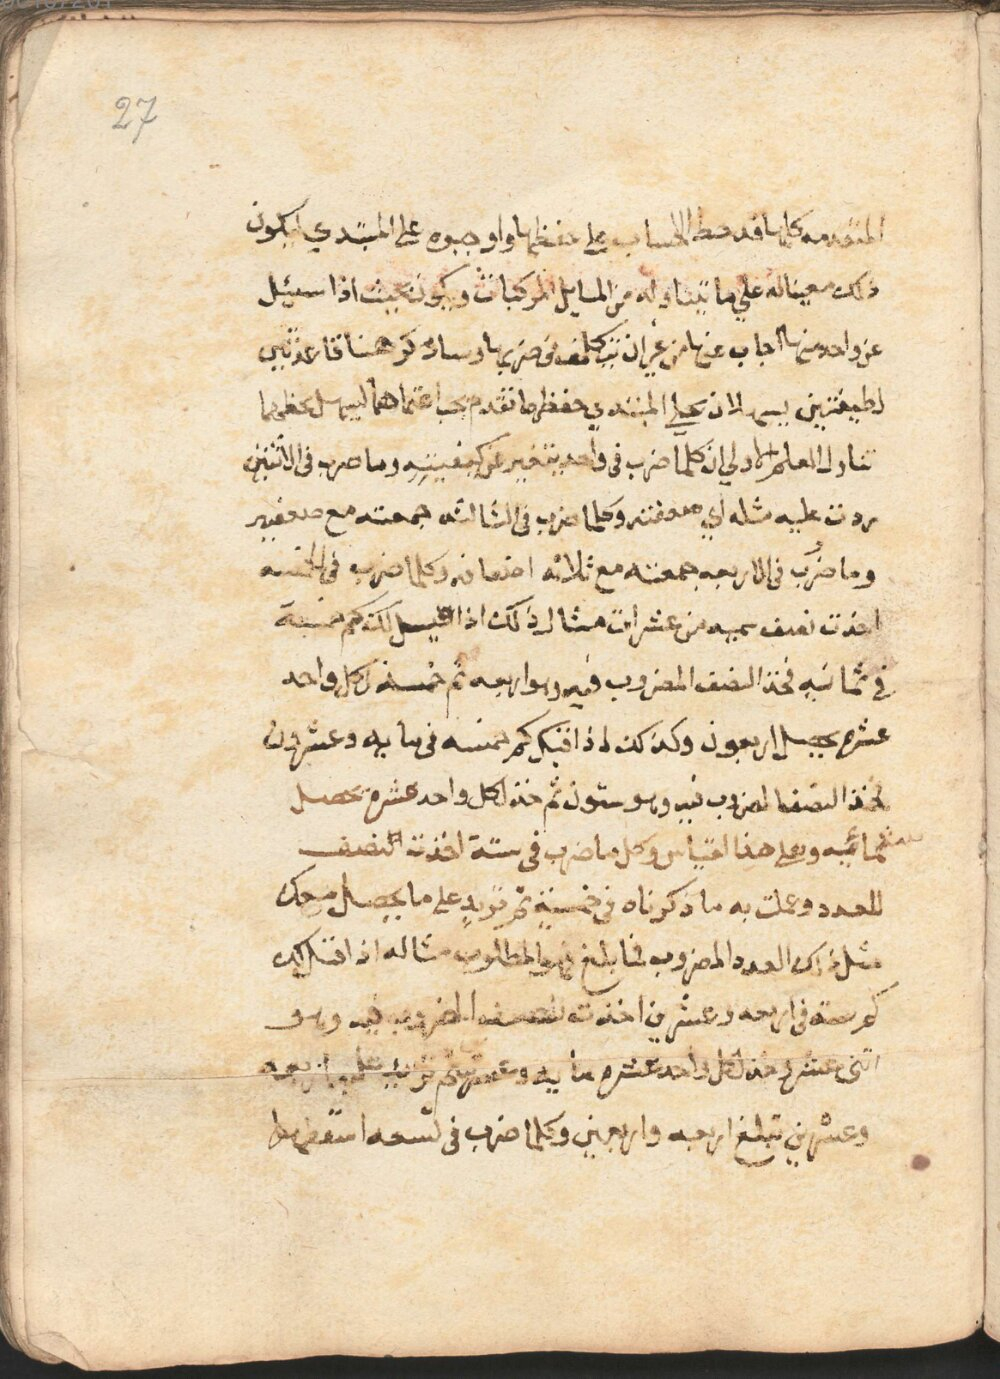 27
المتقدمه كلها قد حط الحساب على حفظها واوجبوه على المبتدي ليكون
ذلك معينا له علي ما تيناوله من المسايل المركبات ويكون بحيث اذا سيئل
عن واحد منها اجاب عنها من غير ان يتكلف في ضربها وساذكر ههنا قاعدتين
لطيفتين يسهلان على المبتدي حفظ ما تقدم يجب اعتمادهما ليسهل بحفظهما
تناول العلم الاولي ان كلما ضرب في واحد يتغير عن كيفيته وما ضرب في الاثنين
زدت عليه مثله اي ضعفته وكلما ضرب في الثالثه جمعته مع ضعفيه
وما ضرب في الاربعه جمعته مع ثلاثه اضعافه وكلما ضرب في الخمسه
اخذت نصف سميه من عشرات مثال ذلك اذا قيل لك كم خمسة
في ثمانيه فخذ النصف المضروب فيه وهو اربعه ثم خمسة لكل واحد
عشره يحصل اربعون وكذلك اذا قيل كم خمسه في مايه وعشرون
فخذ النصف المضروب فيه وهو ستون ثم خذ لكل واحد عشرة يحصل
ستمائيه وعلى هذا القياس وكل ما ضرب في ستة اخذت النصف
للعدد وعملت به ما ذكرناه في خمسة ثم تزيد على ما يحصل معك
مثل ذلك العدد المضروب فما بلغ فهو المطلوب مثاله اذا قيل لك
كم ستة في اربعه وعشرين اخذت نصف المضروب فيه وهو
اثنى عشر خذ لكل واحد عشره مايه وعشرين ثم تزيد عليها اربعه
وعشرين تبلغ اربعه واربعين وكلما ضرب في تسعه اسقطها